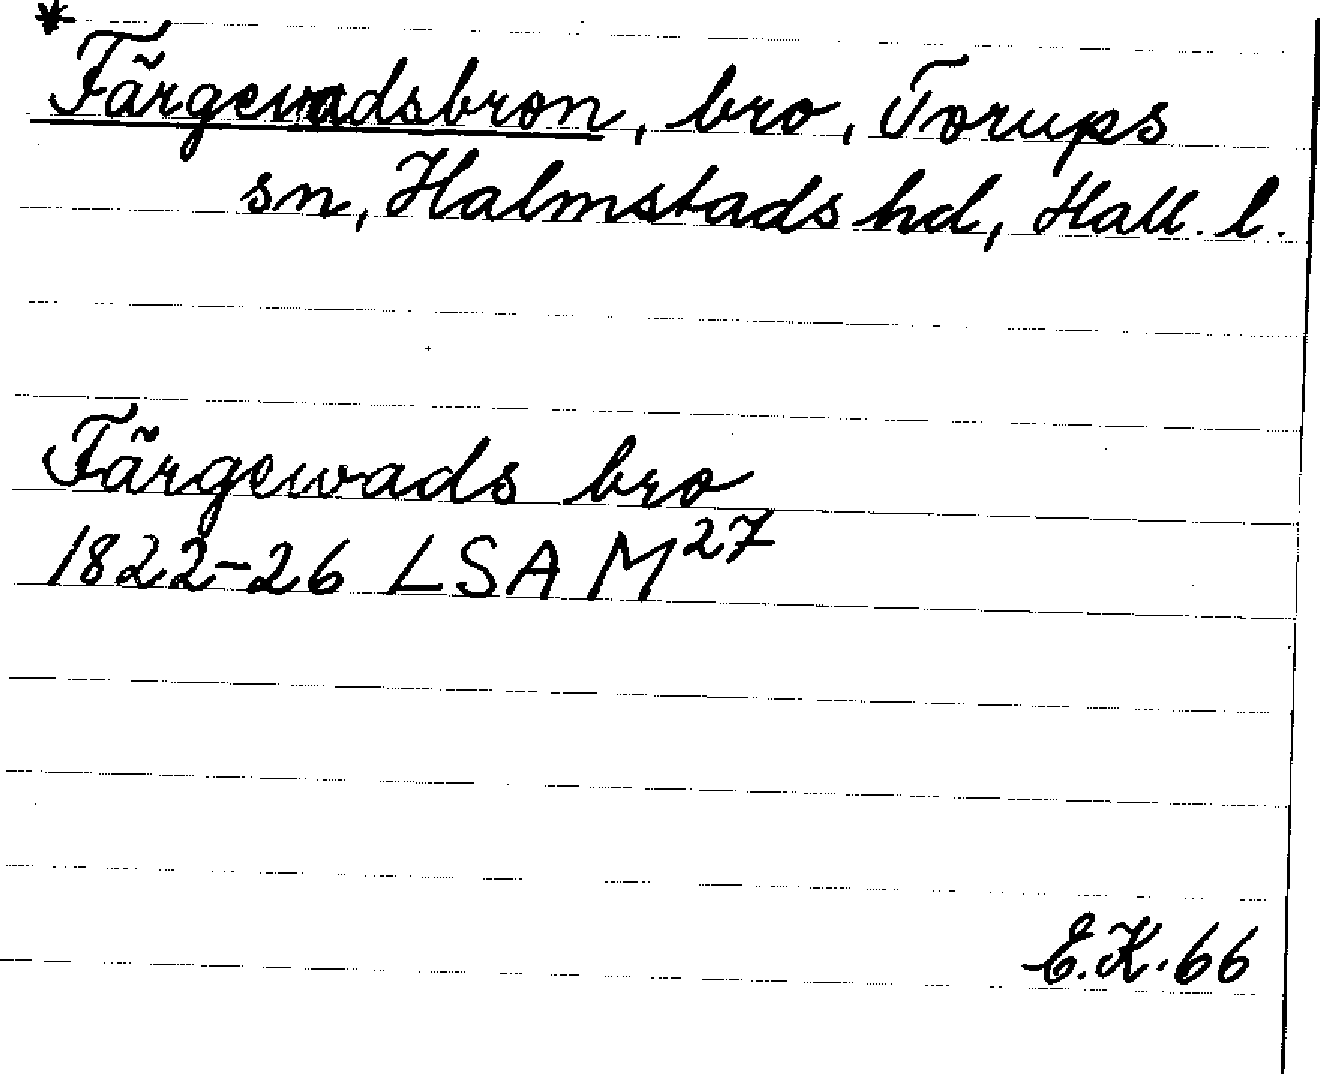 *
Färgevadsbron, bro, Torups
sn, Halmstads hd, Hall. l.
Färgewads bro
1822-26 LSA M27
E.K. 66